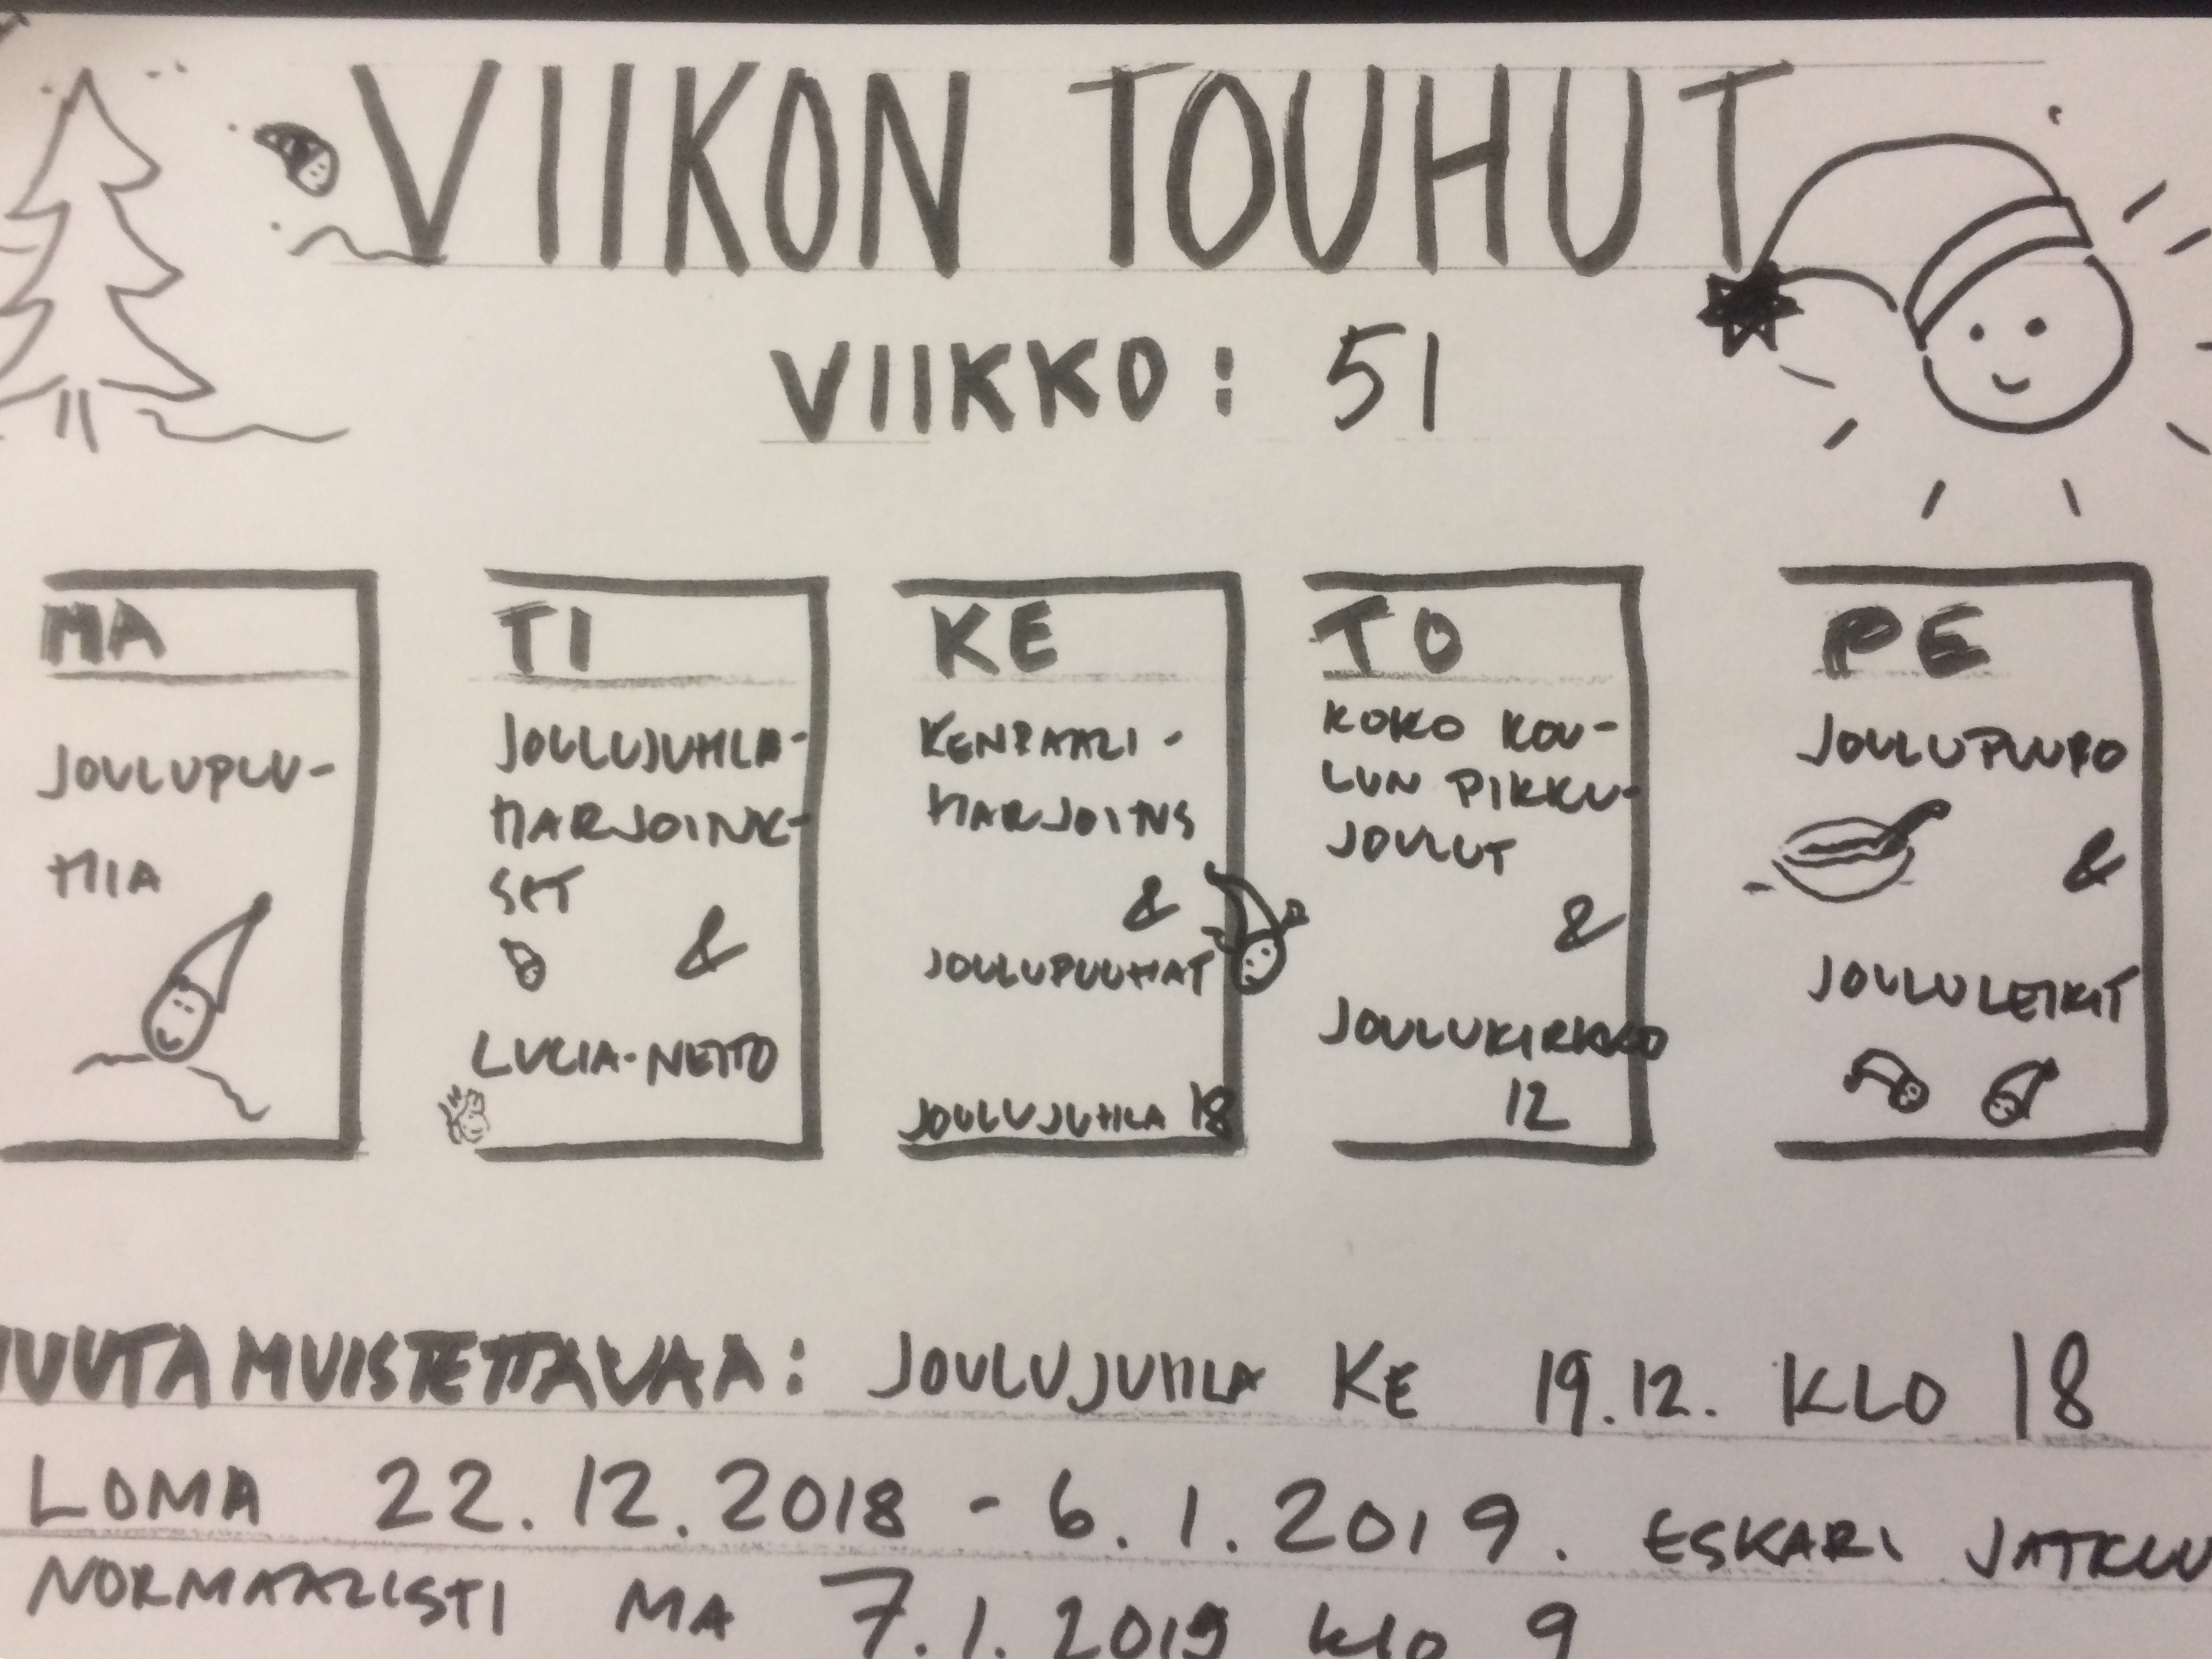 VIIKON TOUHUT
VIIKKO: 51
MA
JOULUPUU-
HIA
TI
JOULUJUHLA-
HARJOINK-
SET
&
LUCIA-NEITO
KE
KENRAALI-
HARJOITUS
&
JOULUPUUHAT
JOULUJUHLA 18
TO
KOKO KOU-
LUN PIKKU-
JOULUT
&
JOULUKIRKKO
12
PE
JOULUPUURO
&
JOULULEIKIT
MUUTA MUISTETTAVAA: JOULUJUHLA KE 19.12. KLO 18
LOMA 22.12.2018 - 6.1.2019. ESKARI JATKUU
NORMAALISTI MA 7.1.2019 klo 9